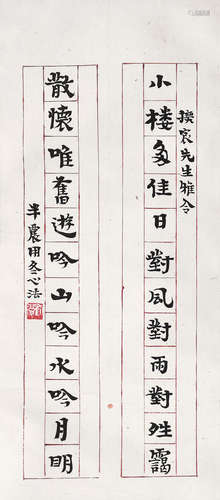 揆宸先生雅令
小楼多佳日對风對雨對靄
散懷唯舊遊吟山吟水吟月明
半農用冬心法